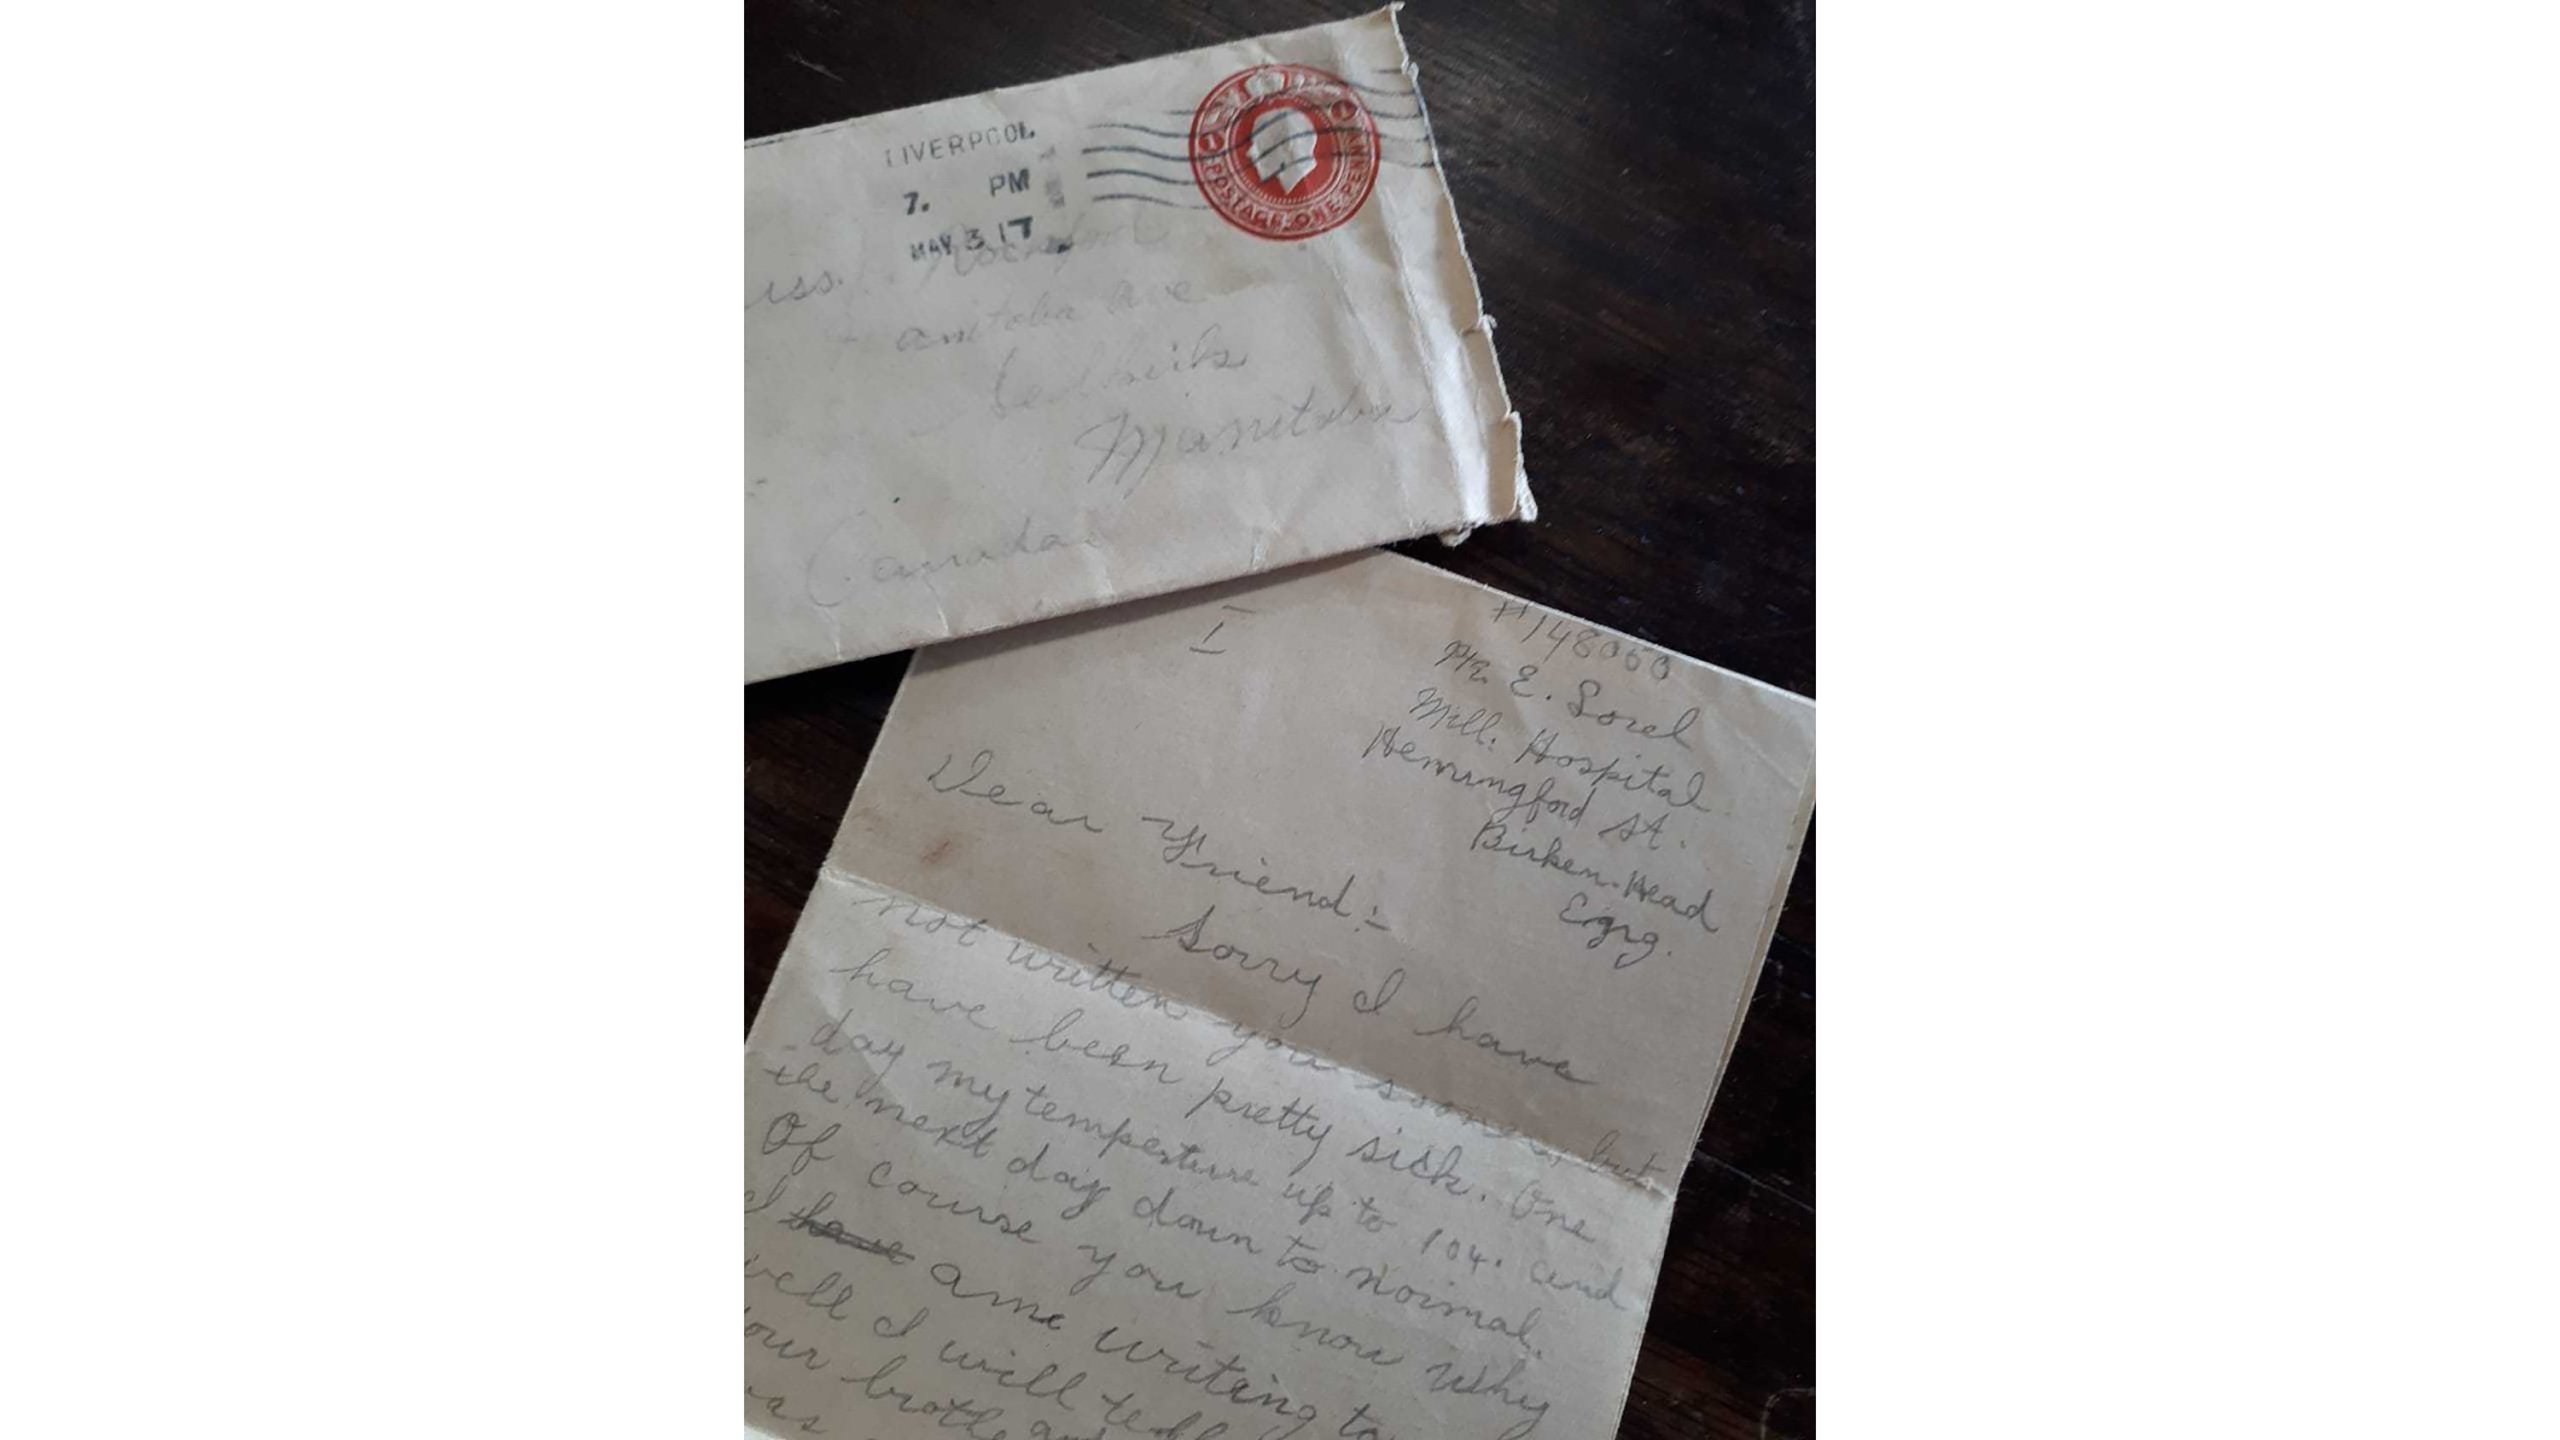 LIVERPOOL
7. PM
MAY 3 17
POSTAGE ONE PENNY
anitoba Ave
Manitoba
Canada
I
#148060
Pte. E. Sorel
Mill. Hospital
Hemingford St.
Birken-Head
Egng.
Dear Friend:-
Sorry I have
not written you sooner, but
have been pretty sick. One
day my temperture up to 104. and
the next day down to normal.
Of course you know why
I have ame writing to
well I will tell
our brothe and
as